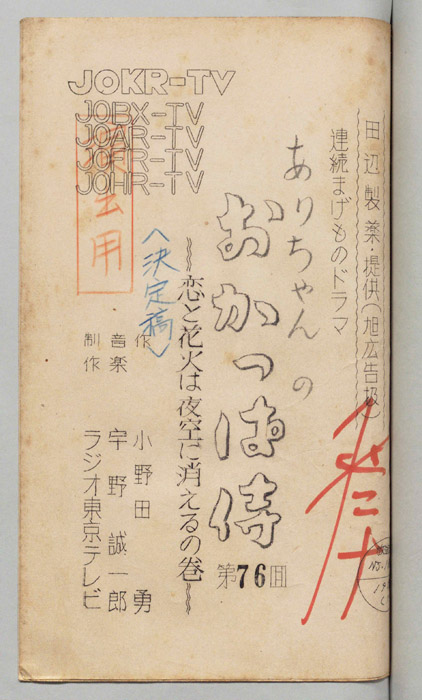 JOKR-TV
JOBX-TV
JOAR-TV
JOFR-TV
JOHR-TV
田辺製薬・提供(旭広告扱)
連続まげものドラマ
ありちゃんの
おかっぱ侍
第76回
恋と花火は夜空に消えるの巻
<決定稿>
作 小野田 勇
音楽 宇野誠一郎
制作 ラジオ東京テレビ
用